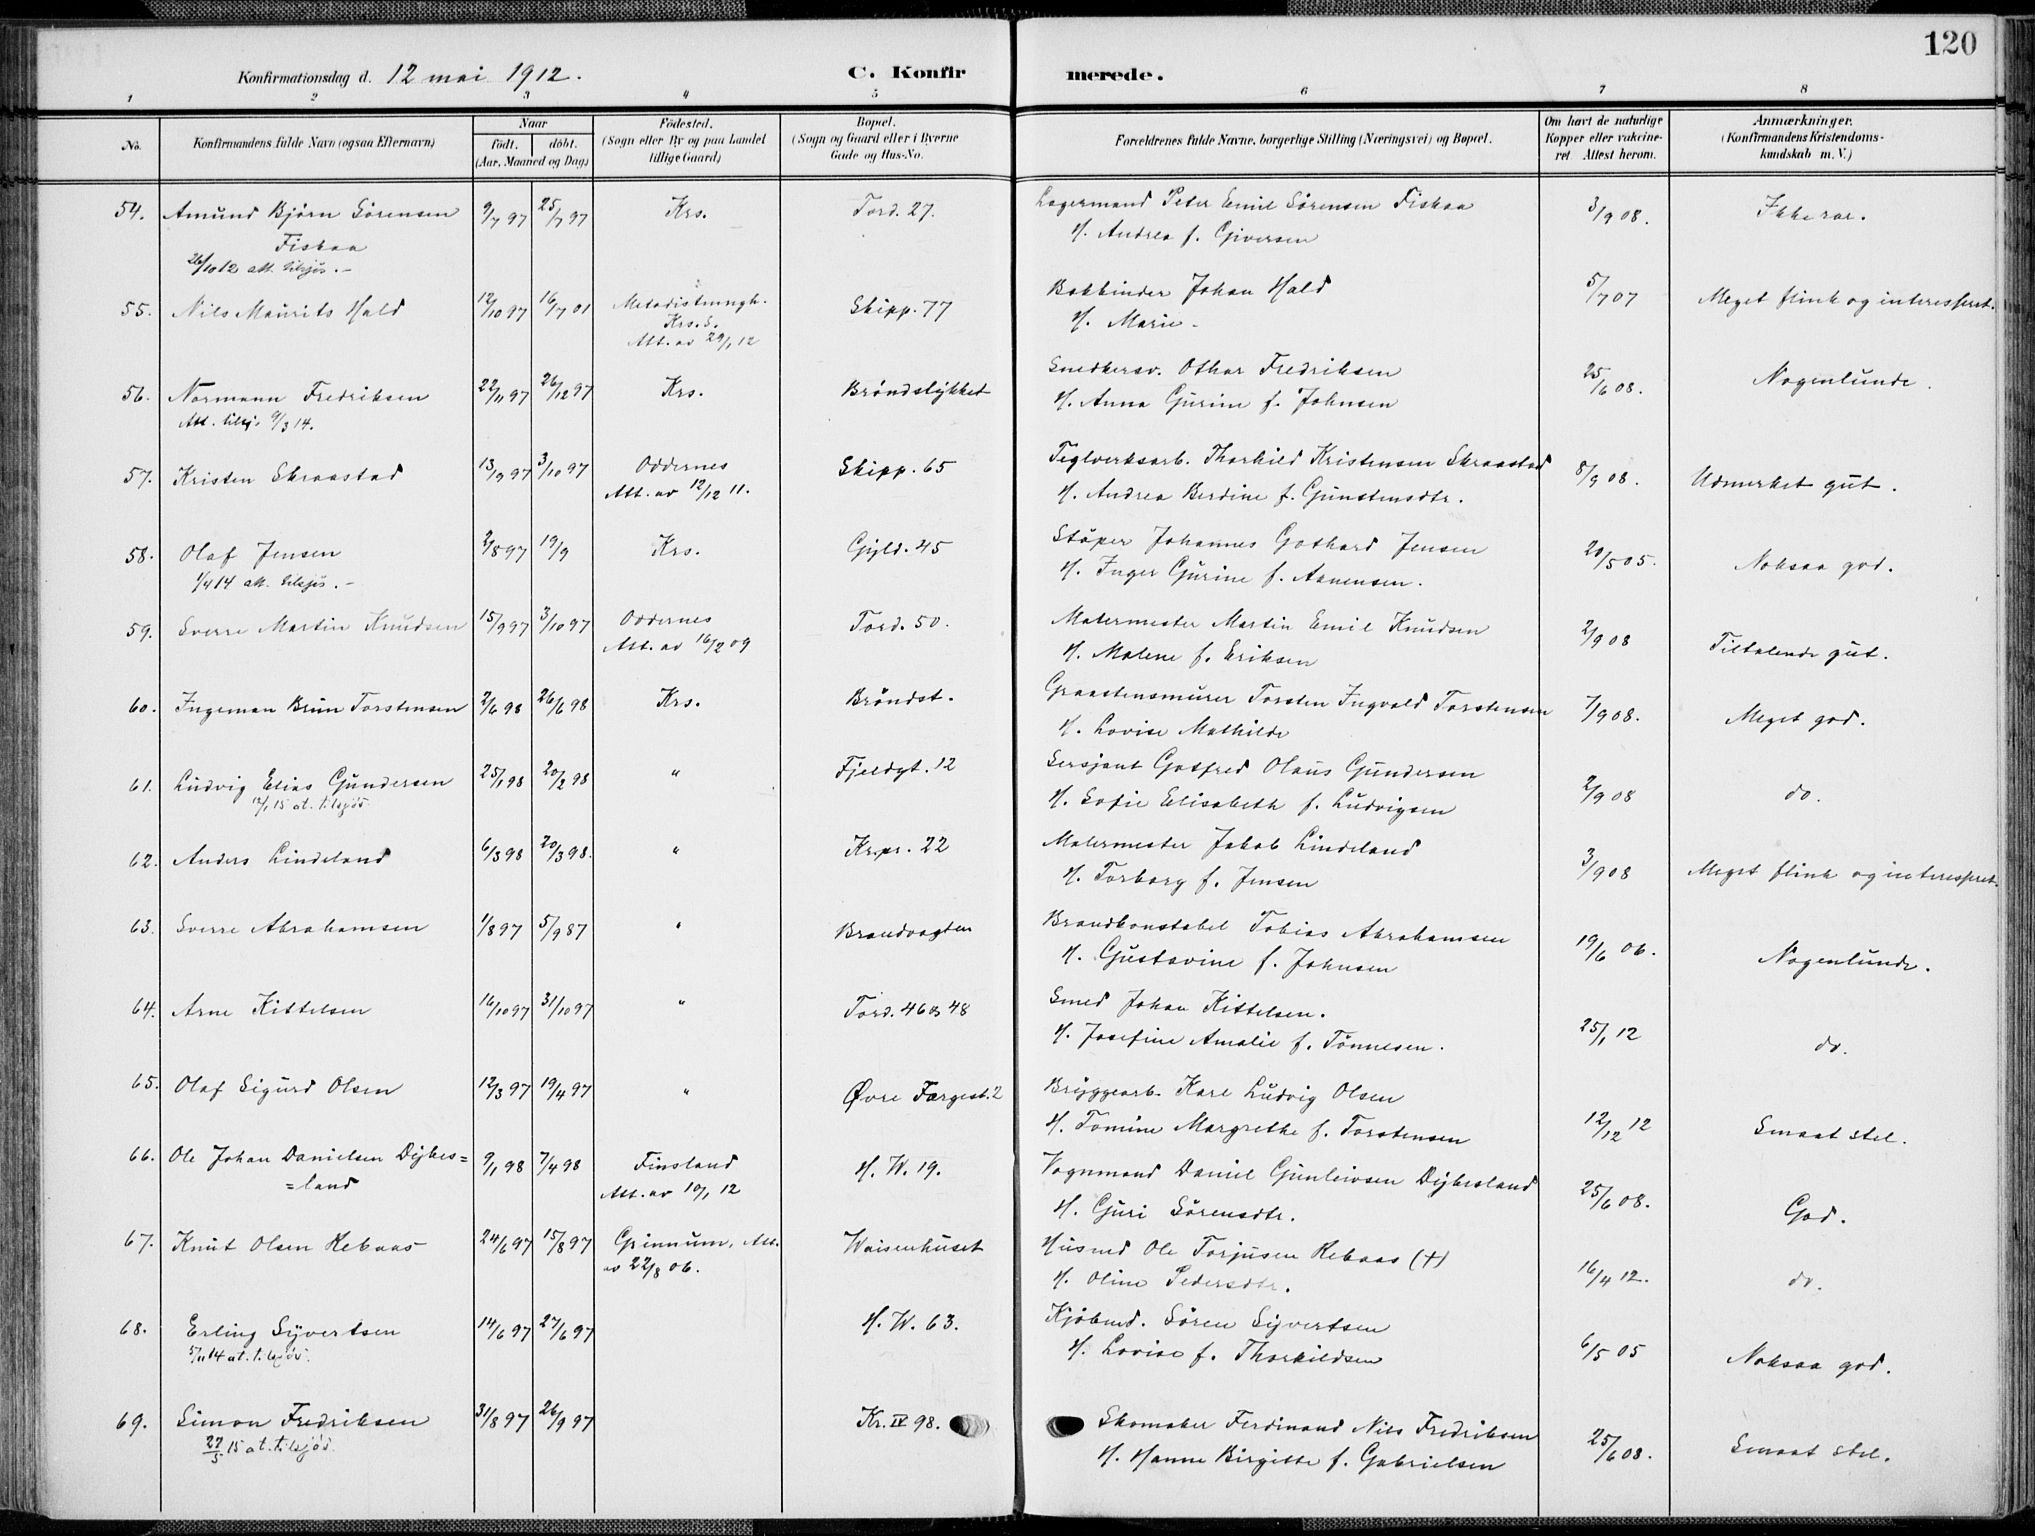 120
Konfirmationsdag d. 12 mai 1912. C. Konfirmerede.
1 2 3 4 5 6 7 8
No. Konfirmandens fulde Navn (ogsaa Efternavn) Naar födt. döbt. (Aar, Maaned og Dag) Födested. (Sogn eller By og paa Landet tillige Gaard) Bopæl. (Sogn og Gaard eller i Byerne Gade og Hus-No. Forældrenes fulde Navne, borgerlige Stilling (Næringsvei) og Bopæl. Om havt de naturlige Kopper eller vakcineret Attest herom. Anmærkninger. (Konfirmandens Kristendomskundskab m. V.)
54. Amund Bjørn Sörensen 9/7 97 25/7 97 Krs. Tord. 27. Lagermand Peter Emil Sörensen Fiskaa 3/9 08. Ikke rar.
Fiskaa H. Andrea f. Giversen
26/10 12 att. tilsjös. -
55. Nils Maurits Hald 12/10 97 16/7 01 Metodistmngh. Skipp. 77 Bokbinder Johan Hald 5/7 07 Meget flink og interesseret.
Krs. S. H. Marie -
Att. av 29/1 12
56. Normann Fredriksen 22/11 97 26/12 97 Krs. Bröndslykket Snedkersv. Othar Fredriksen 25/6 08. Nogenlunde.
Att. tilsj. 9/3 14. H. Anna Gurine f. Johnsen
57. Kristen Skraastad 13/9 97 3/10 97 Oddernes Skipp. 65 Teglverksarb. Thorkild Kristensen Skraastad 8/9 08. Udmerket gut.
Att. av 12/12 11. H. Andrea Berdine f. Gunstensdtr.
58. Olaf Jensen 2/8 97 19/9 Krs. Gyld. 45 Stöper Johannes Gothard Jensen 20/5 05. Noksaa god.
1/4 14 att. tilsjös. - H. Inger Gurine f. Aanensen.
59. Sverre Martin Knudsen 15/9 97 3/10 97 Oddernes Tord. 50. Malermester Martin Emil Knudsen 2/9 08 Tiltalende gut.
Att. av 16/2 09 H. Malene f. Eriksen
60. Ingeman Brun Torstensen 2/6 98 26/6 98 Krs. Bröndst. Graastensmurer Torsten Ingvald Torstensen 7/9 08. Meget god.
H. Lovise Mathilde
61. Ludvig Elias Gundersen 25/1 98 20/2 98 " Fjeldgt. 12 Sersjant Gotfred Olaus Gundersen 2/9 08 do.
12/1 15 at. tilsjös. H. Sofie Elisabeth f. Ludvigsen
62. Anders Lindeland 6/3 98 20/3 98. " Krpr. 22 Malermester Jakob Lindeland 3/9 08 Meget flink og interesseret.
H. Torborg f. Jensen
63. Sverre Abrahamsen 1/8 97 5/9 87 " Brandvagten Brandkonstabel Tobias Abrahamsen 19/6 06. Nogenlunde.
H. Gustavine f. Johnsen
64. Arne Kittelsen 16/10 97 31/10 97 " Tord. 46 og 48 Smed Johan Kittelsen. 25/1 12 do.
H. Josefine Amalie f. Tönnesen.
65. Olaf Sigurd Olsen 12/3 97 19/4 97 " Øvre Færgest. 2 Bryggearb. Kare Ludvig Olsen 12/12 12 Smaat stel.
H. Tomine Margrethe f. Torstensen
66. Ole Johan Danielsen Dybes= 9/1 98 7/4 98 Finsland H. W. 19. Vognmand Daniel Gunleivsen Dybesland 25/6 08. God.
=land Att. av 10/1 12 H. Guri Sörensdtr.
67. Knut Olsen Rebaas 24/6 97 15/8 97 Grinnum, Att. Waisenhuset Husmd Ole Torjusen Rebaas (+) 16/4 12. do.
av 22/8 06. H. Oline Pedersdtr.
68. Erling Syvertsen 14/6 97 27/6 97 H. W. 63. Kjöbmd. Sören Syvertsen 6/5 05 Noksaa god.
5/11 14 at. tilsjös. H. Lovise f. Thorkildsen
69. Simon Fredriksen 31/8 97 26/9 97 Kr. IV 98. Skomaker Ferdinand Nils Fredriksen 25/6 08. Smaat stel.
27/5 15 at. tilsjös. H. Hanne Birgitte f. Gabrielsen